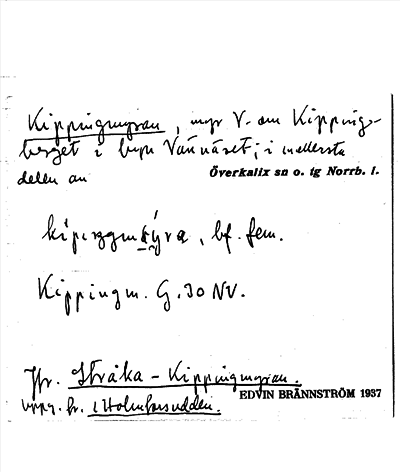 Kippingmyran, myr V. om Kippings-
berget i byn Vännäset; i mellersta
delen av
Överkalix sn o. tg Norrb. l.
bf. fem.
Kippingm. G. 30 NV.
Jfr. Stråka - Kippingmyran.
uppg. fr. i Holmforsudden.
EDVIN BRÄNNSTRÖM 1937